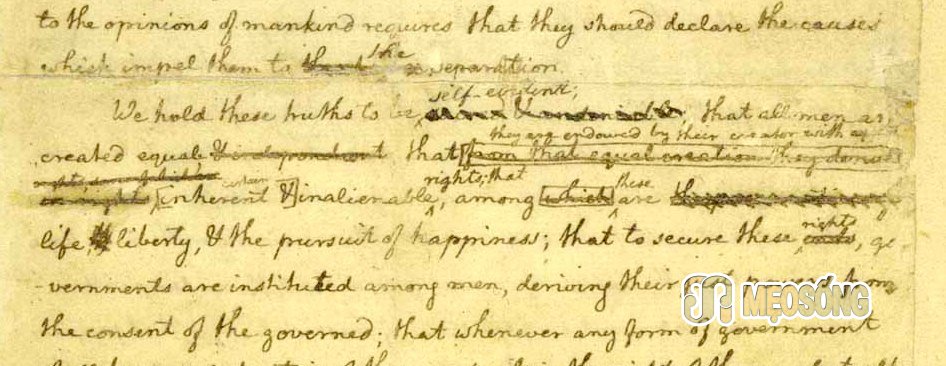 to the opinions of mankind requires that they should declare the causes
which impel them to the separation.
self-evident;
We hold these truths to be that all men ar
they are endowed by their creator with
created equal & independant that from that equal creation they derive
rights
rights; that
certain
these
inherent & inalienable, among which are
rights
life, & liberty, & the pursuit of happiness; that to secure these ends, go
-vernments are instituted among men, deriving their just powers from
the consent of the governed; that whenever any form of government
MẸOSONG